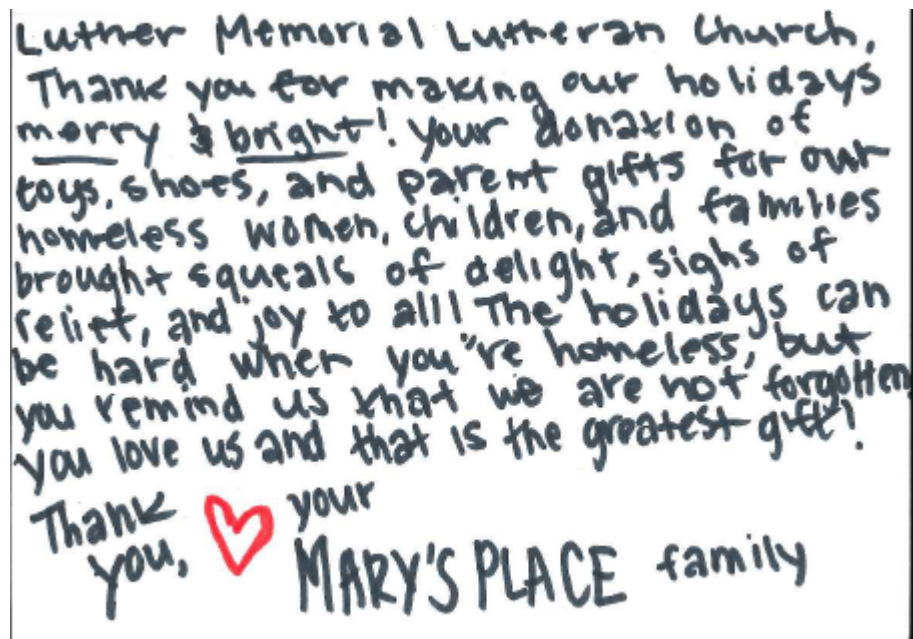 Luther Memorial Lutheran Church,
Thank you for making our holidays
merry & bright! Your donation of
toys, shoes, and parent gifts for our
homeless women, children, and families
brought squeals of delight, sighs of
relief, and joy to all! The holidays can
be hard when you're homeless, but
you remind us that we are not forgotten,
you love us and that is the greatest gift!
Thank your
you, MARY'S PLACE family